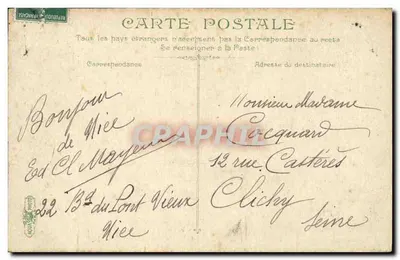 CARTE POSTALE
Tous les pays étrangers n'acceptent pas la Correspondance au recto
Se renseigner à la Poste
Correspondance
Adresse du destinataire
Bonjour
de Nice
Ed Cl Mayeur
22 Bd du Pont Vieux
Nice
Monsieur Madame
Cocquard
12 rue Castérès
Clichy
Seine
CPARAMA